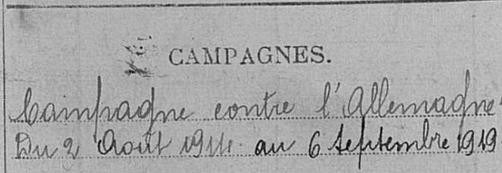 CAMPAGNES.
Campagne contre l'Allemagne
Du 2 Août 1914 au 6 Septembre 1919